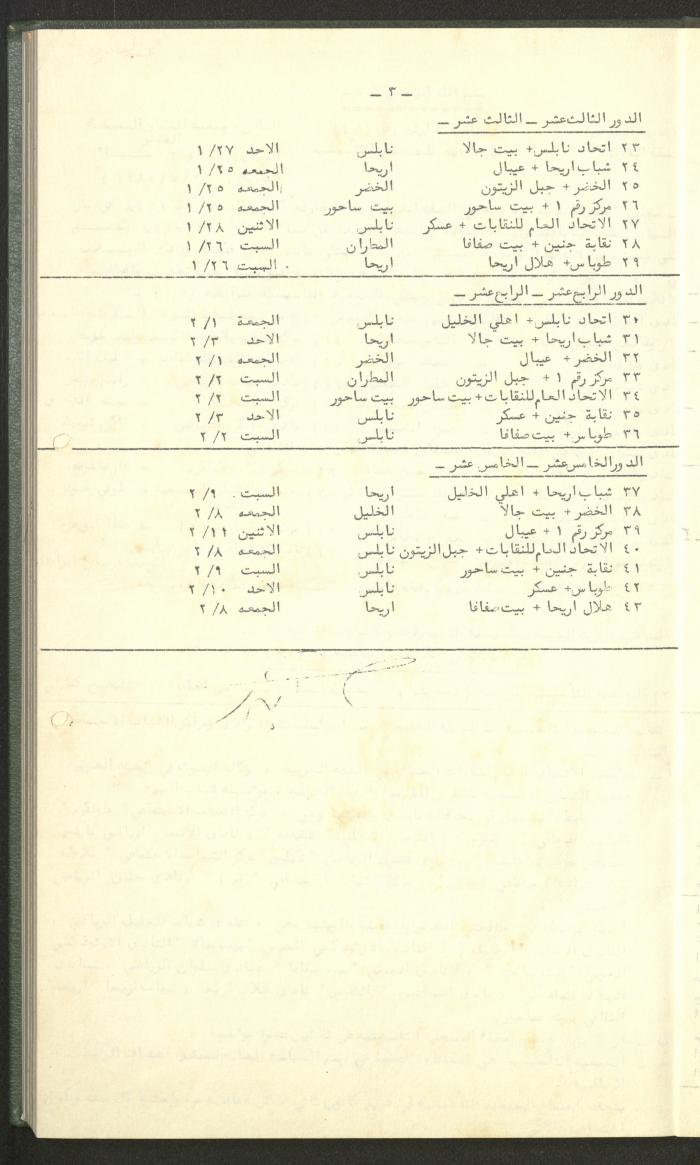 ـ ٣ ـ
الدور الثالث عشر ـ الثالث عشر ـ
٢٣ اتحاد نابلس + بيت جالا نابلس الاحد ١/٢٧
٢٤ شباب اريحا + عيبال اريحا الجمعه ١/٢٥
٢٥ الخضر + جبل الزيتون الخضر الجمعه ١/٢٥
٢٦ مركز رقم ١ + بيت ساحور بيت ساحور الجمعه ١/٢٥
٢٧ الاتحاد العام للنقابات + عسكر نابلس الاثنين ١/٢٨
٢٨ نقابة جنين + بيت صفافا المطران السبت ١/٢٦
٢٩ طوباس + هلال اريحا اريحا السبت ١/٢٦
الدور الرابع عشر ـ الرابع عشر ـ
٣٠ اتحاد نابلس + اهلي الخليل نابلس الجمعة ٢/١
٣١ شباب اريحا + بيت جالا اريحا الاحد ٢/٣
٣٢ الخضر + عيبال الخضر الجمعه ٢/١
٣٣ مركز رقم ١ + جبل الزيتون المطران السبت ٢/٢
٣٤ الاتحاد العام للنقابات + بيت ساحور بيت ساحور السبت ٢/٢
٣٥ نقابة جنين + عسكر نابلس الاحد ٢/٣
٣٦ طوباس + بيت صفافا نابلس السبت ٢/٢
الدور الخامس عشر ـ الخامس عشر ـ
٣٧ شباب اريحا + اهلي الخليل اريحا السبت ٢/٩
٣٨ الخضر + بيت جالا الخليل الجمعه ٢/٨
٣٩ مركز رقم ١ + عيبال نابلس الاثنين ٢/١١
٤٠ الاتحاد العام للنقابات + جبل الزيتون نابلس الجمعه ٢/٨
٤١ نقابة جنين + بيت ساحور نابلس السبت ٢/٩
٤٢ طوباس + عسكر نابلس الاحد ٢/١٠
٤٣ هلال اريحا + بيت صفافا اريحا الجمعه ٢/٨